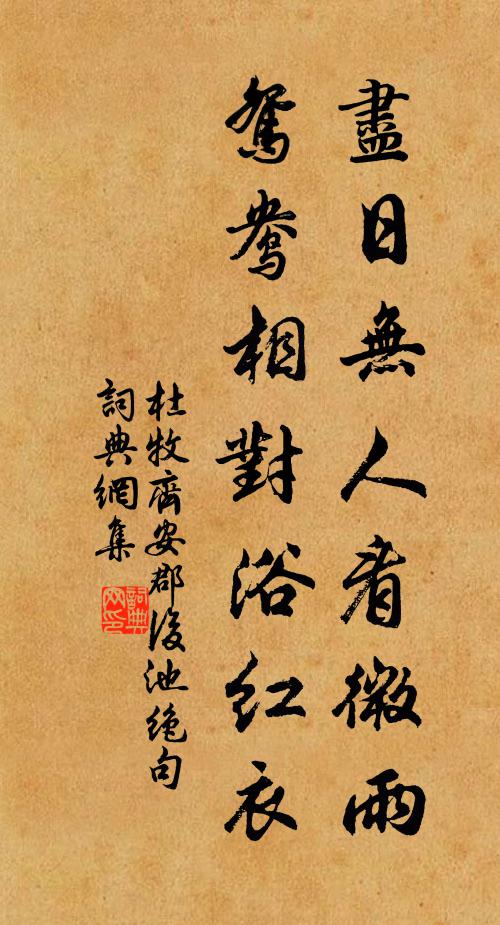 盡日無人看微雨
鴛鴦相對浴红衣
杜牧齊安郡後池絶句
詞典網集
詞典
网印